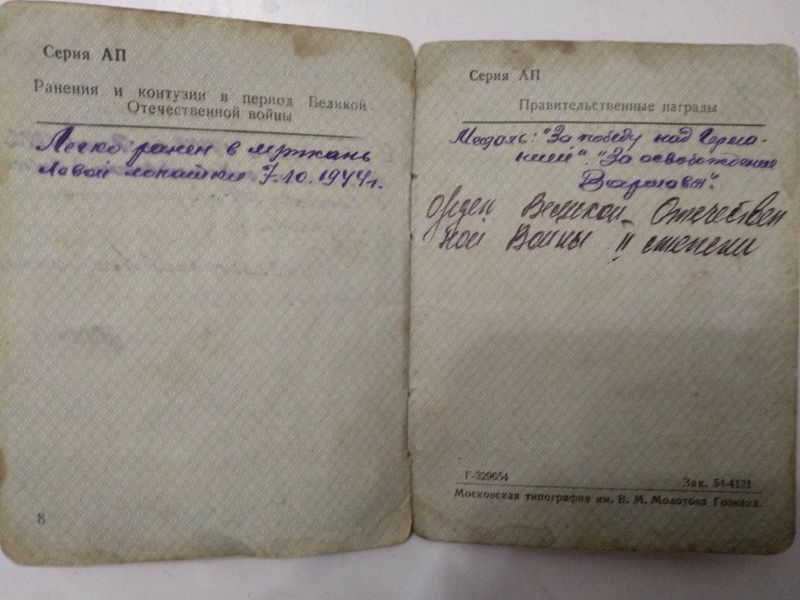 Серия АП
Ранения и контузии в период Великой
Отечественной войны
Легко ранен в мткань
Левой лопатки 7.10.1944г.
8
Серия АП
Правительственные награды
Медаль: "За победу над Герма-
нией". "За освобождение
Варшавы".
Орден Великой Отечествен
ной Войны II степени
Г-329654
Зак. 54-4131
Московская типография им. В. М. Молотова Гознака.